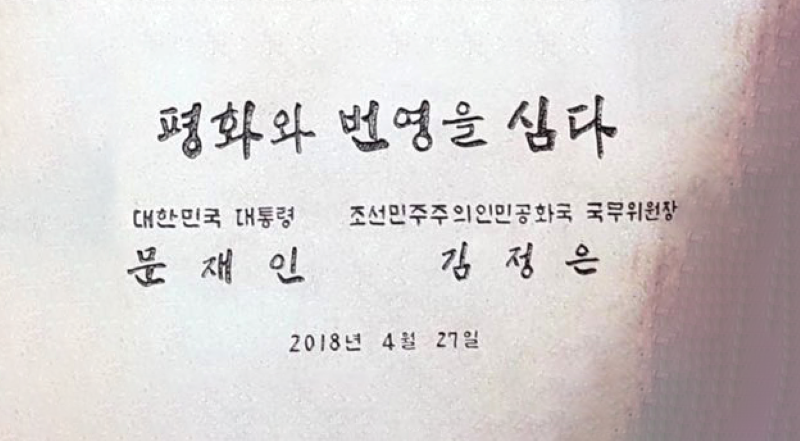 평화와 번영을 심다
대한민국 대통령 조선민주주의인민공화국 국무위원장
문 재 인 김 정 은
2018년 4월 27일